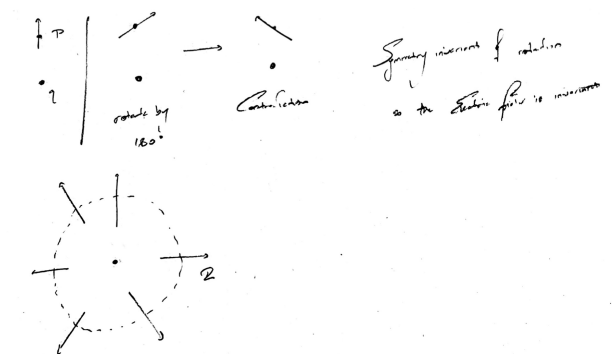 P
q
rotate by
180°
Contradiction
Symmetry invariant of rotation
so the Electric field is invariant
R